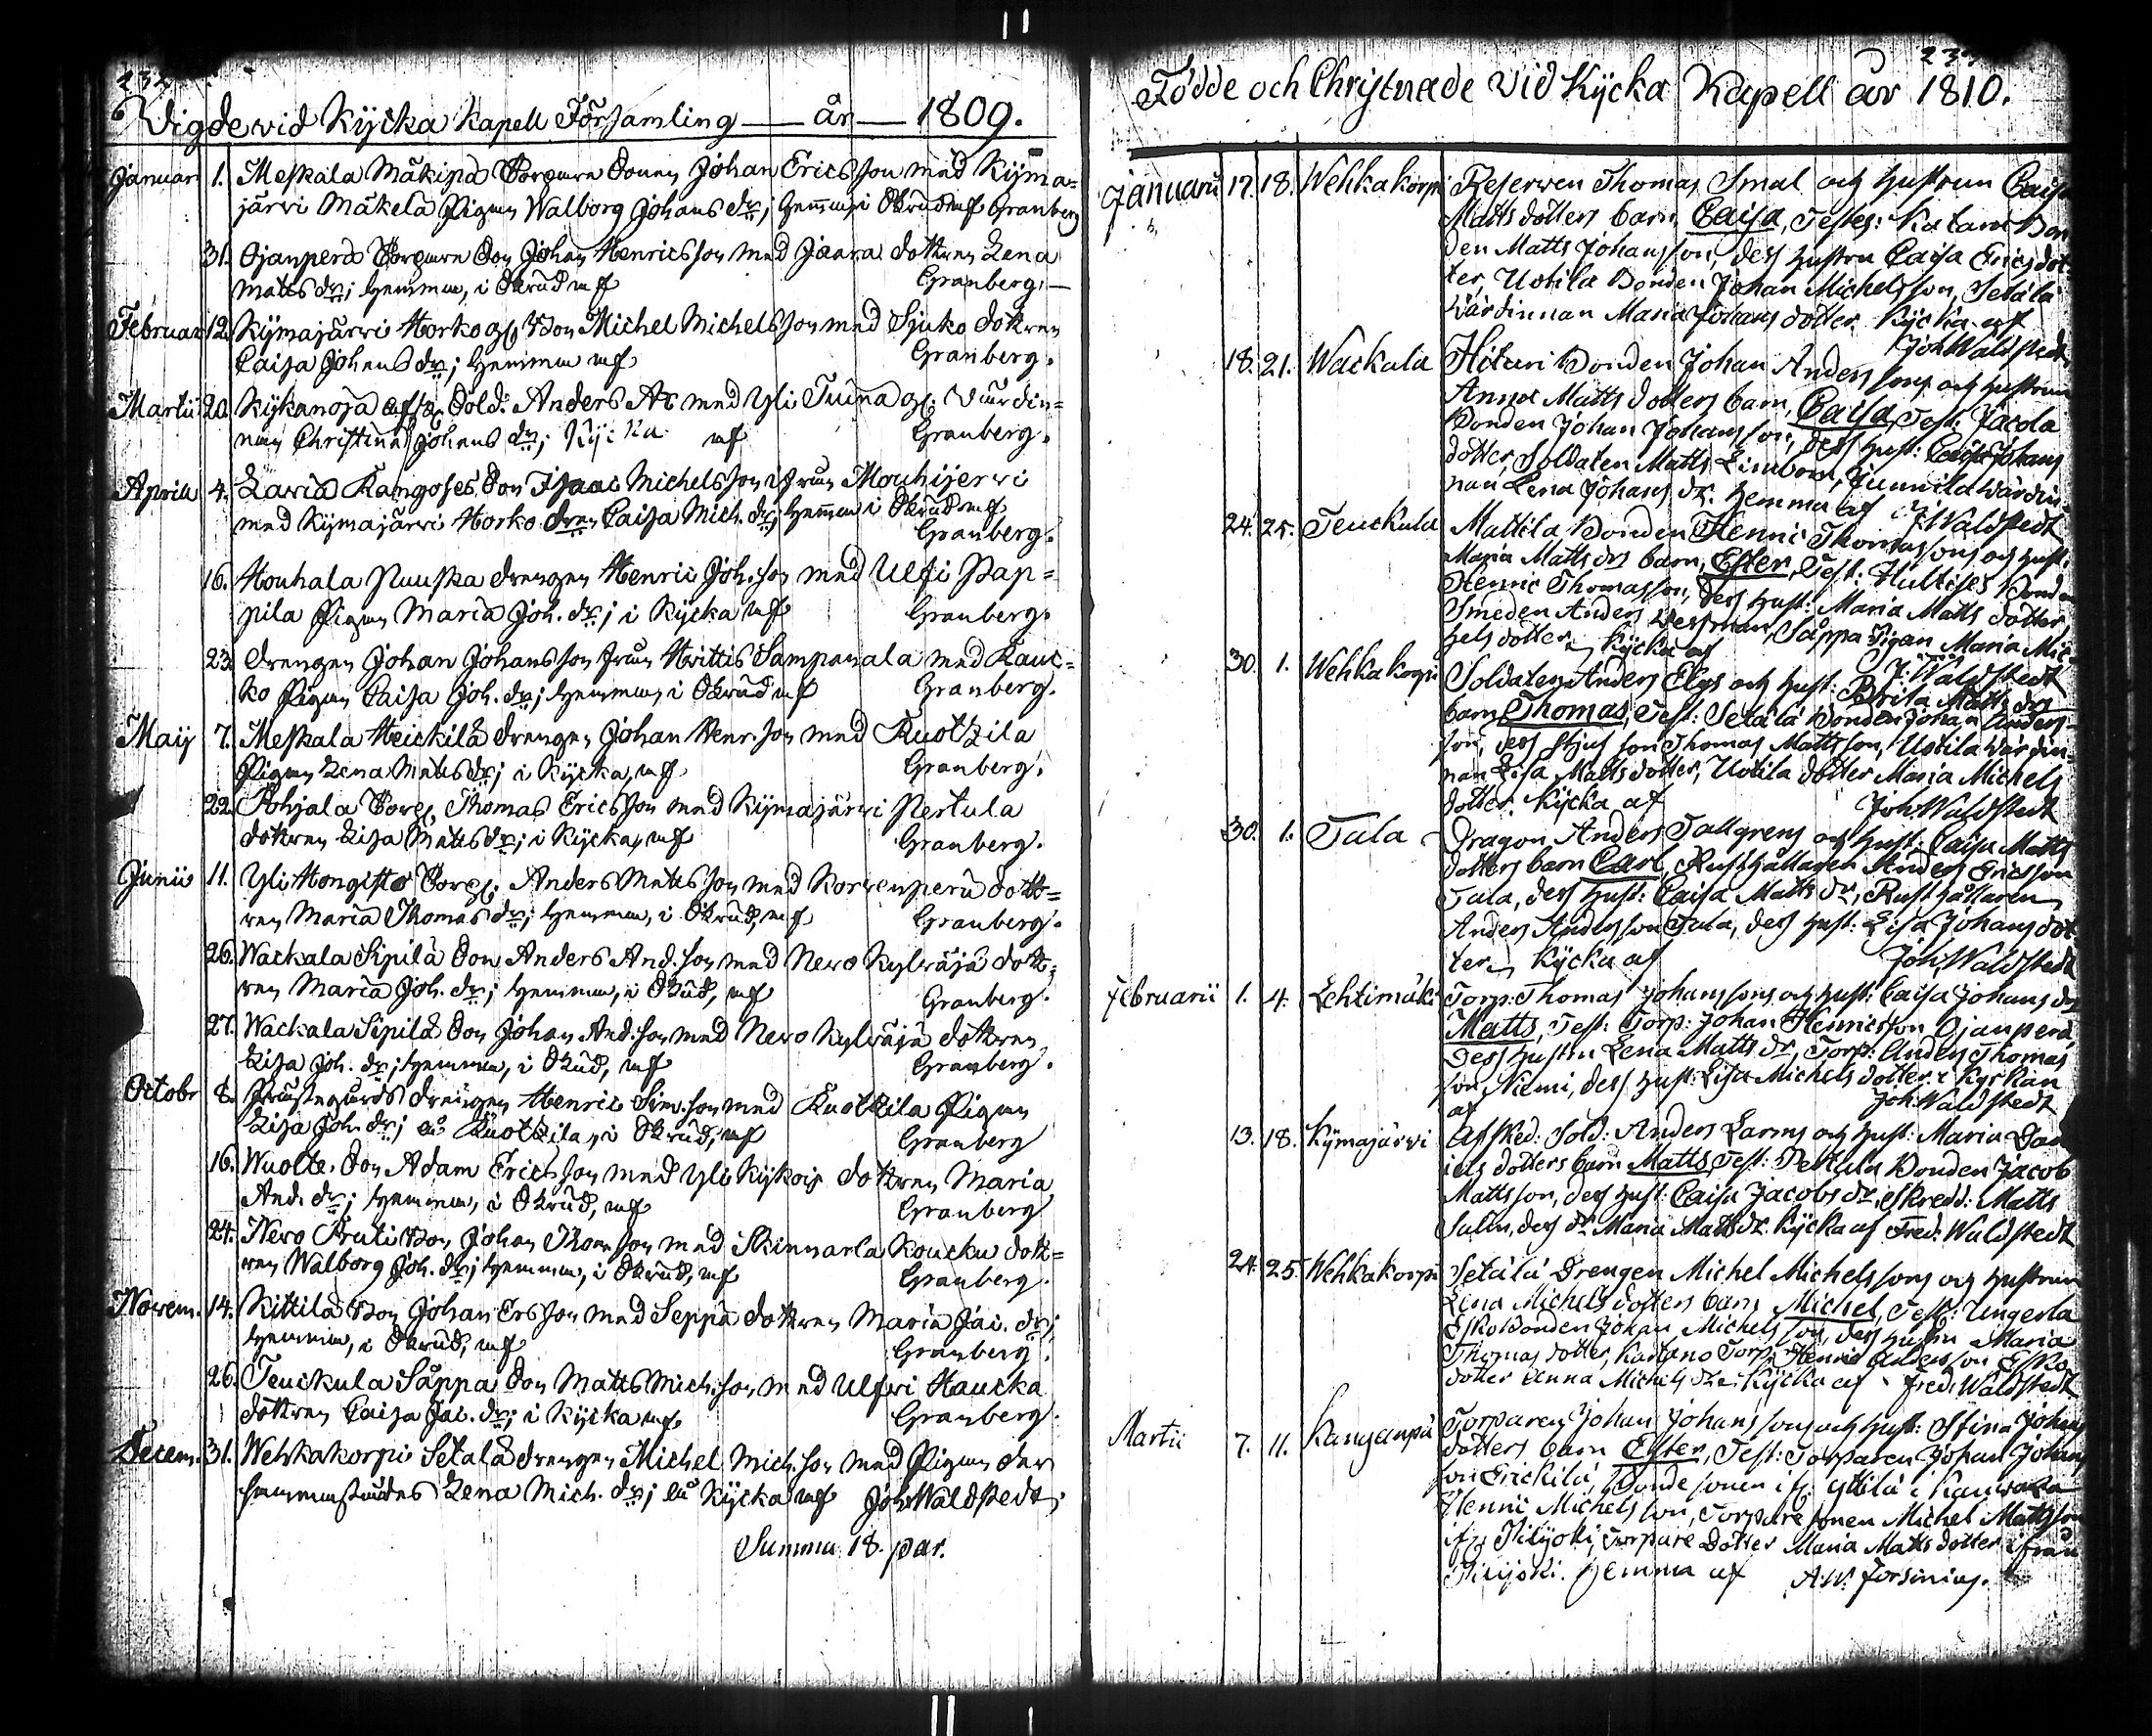 Vigde vid Kycka Kapell Församling — år — 1809.
Januari 1. Meskala Mäkipä Torpare Sonen Johan Ericsson med Kyma=
järvi Mäkelä Pigan Walborg Johans dr; Hemma, i Skrud af Granberg
31. Ojanperä Torpare Son Johan Henricsson med Jaara dottren Lena
Matts dr; hemma, i Skrud af Granberg.—
Februar 12. Kymajärvi Horko Michel Michelsson med Sjuko dottren
Caisa Johans dr; hemma af Granberg.
Martii 20. Kykänoja Sold: Anders As med Yli Tuina Värdin=
nan Christina Johans dr; Kycka af Granberg.
Aprill 4. Lavia Kangoses Son Isaac Michelsson ifrån Mouhijervi
med Kymajärvi Horko dren Caisa Mich. dr; hemma i Skrud af
Granberg.
16. Houhala Puuska drengen Henric Joh. son med Ulfi Pap=
pila Pigan Maria Joh. dr; i Kycka af Granberg.
23. drengen Johan Johansson från Hvittis Sampanala med Kauc=
ko Pigan Caisa Joh. dr; hemma, i Skrud af Granberg.
Maij 7. Meskala Heickilä drengen Johan Henr. son med Kuotzila
Pigan Lena Matts dr; i Kycka, af Granberg.
22. Pohjala Torp. Thomas Ericsson med Kymajärvi Pertula
dottren Lisa Matts dr; i Kycka, af Granberg.
Junii 11. Yli Hongisto Torp. Anders Mattsson med Korvenperä dott=
ren Maria Thomas dr; hemma, i Skrud, af Granberg.
26. Wackala Sipilä Son Anders And. son med Nero Kylväjä dott=
ren Maria Joh. dr; hemma, i Skrud, af Granberg.
27. Wackala Sipilä Son Johan And. son med Nero Kylväjä dottren
Lisa Joh. dr; hemma, i Skrud, af Granberg.
Octobr 8. Prästegårds drengen Henric Sim. son med Kuotzila Pigan
Lisa Joh. dr; på Kuotzila, i Skrud, af Granberg
16. Wuolte Son Adam Ericsson med Yli Kykois dottren Maria
And. dr; hemma, i Skrud, af Granberg
24. Nero Pruti Son Johan Thom. son med Skinnarla Koucku dott=
ren Walborg Joh. dr; hemma, i Skrud, af Granberg.
Novem. 14. Kittilä Son Johan Ersson med Seppä dottren Maria Jac. dr;
hemma, i Skrud, af Granberg.
26. Teuckula Såppa Son Matts Mich. son med Ulfvi Haucka
dottren Caisa Jac. dr; i Kycka af Granberg.
Decem. 31. Wehkakorpi Setälä drengen Michel Mich. son med Pigan der
sammastädes Lena Mich. dr; på Kycka af Joh: Waldstedt.
Summa 18. par.
Födde och Christnade vid Kycka Kapell år 1810.
Januarii 17. 18. Wehkakorpi Reserven Thomas Smal och hustrun Caisa
Matts dotters barn Caisa, Testes: Katara Bon
den Matts Johansson, dess hustru Caisa Erics dot
ter, Uotila Bonden Johan Michelsson, Setälä
Värdinnan Maria Johans dotter. Kycka af
Joh: Waldstedt
18. 21. Wackala Hituri Bonden Johan Anderssons och hustrun
Anna Matts dotters barn, Caisa, Test: Jacola
Bonden Johan Johansson, dess hust: Caisa Johans
dotter, Soldaten Matts Limbom, Junnila Värdin
nan Lena Johans dr. hemma af J: Waldstedt
24. 25. Teuckula Mattila Bonden Henric Thomassons och hust:
Maria Matts drs barn, Ester, Test: Hultises Bonden
Henric Thomasson, dess hust: Maria Matts dotter,
Smeden Anders Wesman, Såppa Pigan Maria Mic
hels dotter, Kycka af J: Waldstedt
30. 1. Wehkakorpi Soldaten Anders Elgs och hust: Brita Matts drs
barn Thomas, Test: Setälä Bonden Johan Anders
son, dess stjuf son Thomas Mattsson, Uotila Värdin
nan Lisa Matts dotter, Uotila dotter Maria Michels
dotter. Kycka af Joh: Waldstedt
30. 1. Tula Dragon Anders Tallgrens och hust: Caisa Matts
dotters barn Carl, Rusthållaren Anders Ericsson
Tula, dess hust: Caisa Matts dr, Rusthållaren
Anders Andersson Tula, dess hust: Lisa Johans dot
ter, Kycka af Joh: Waldstedt
Februarii 1. 4. Lehtimäki Torp: Thomas Johanssons och hust: Caisa Johans drs
Matts, Test: Torp: Johan Henricsson Ojanperä,
dess hustru Lena Matts dr, Torp: Anders Thomas
son Niemi, dess hust: Lisa Michels dotter i Kyrkan
af Joh: Waldstedt
13. 18. Kymajärvi Afsked: Sold: Anders Larms och hust: Maria Dan
iels dotters barn Matts, Test: Pertula Bonden Jacob
Mattsson, dess hust: Caisa Jacobs dr, Skredd: Matts
Salin, dess dr Maria Matts dr. Kycka af Fred: Waldstedt
24. 25. Wehkakorpi Setälä Drengen Michel Michelssons och hustrun
Lena Michels dotters barn Michel, Test: Ungerla
Esko Bonden Johan Michelsson, dess hustru Maria
Thomas dotter, Kartano Torp: Henric Andersson Esko
dotter Anna Michels dr. Kycka af Fred: Waldstedt
Martii 7. 11. Kangenpä Torparen Johan Johanssons och hust: Stina Johans
dotters barn Ester, Test: Torparen Johan Johans
son Erickilä, Bonde sonen ifr: Yttilä i Kauvatsa
Henric Michelsson, Torpare sonen Michel Mattsson
ifr: Piilijoki, Torpare Dotter Maria Matts dotter ifrån
Piilijoki. Hemma af A.W. Forsenius.